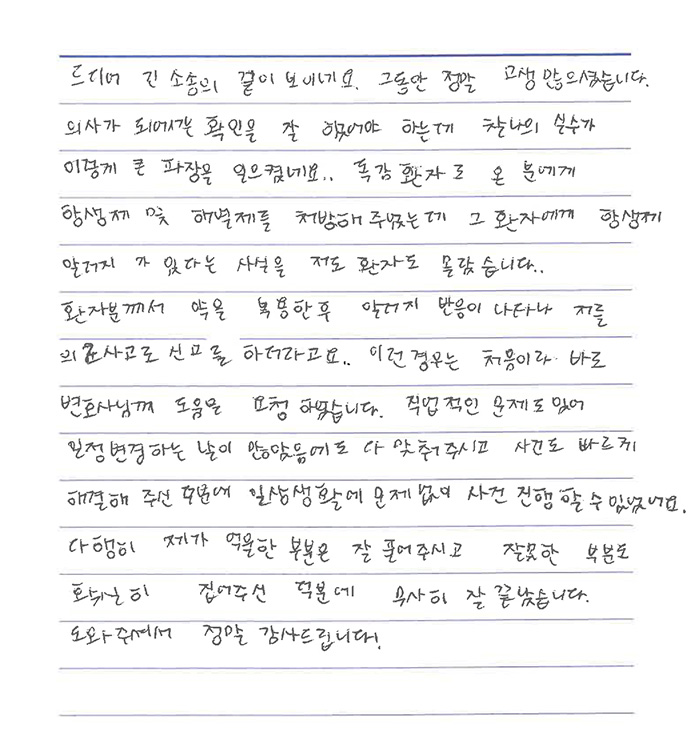 드디어 긴 소송의 끝이 보이네요. 그동안 정말 고생 많으셨습니다.
의사가 되어서는 확인을 잘 했어야 하는데 찰나의 실수가
이렇게 큰 파장을 일으켰네요.. 독감 환자로 온 분에게
항생제 및 해열제를 처방해 주었는데 그 환자에게 항생제
알러지 가 있다는 사실을 저도 환자도 몰랐습니다..
환자분께서 약을 복용한 후 알러지 반응이 나타나 저를
의료사고로 신고를 하더라고요.. 이런 경우는 처음이라 바로
변호사님께 도움을 요청 하였습니다. 직업적인 문제도 있어
일정변경하는 날이 많았음에도 다 맞춰주시고 사건도 빠르게
해결해 주신 덕분에 일상생활에 문제 없이 사건 진행 할 수 있었네요.
다행히 제가 억울한 부분은 잘 풀어주시고 잘못한 부분도
확실히 집어주신 덕분에 무사히 잘 끝났습니다.
도와주셔서 정말 감사드립니다!